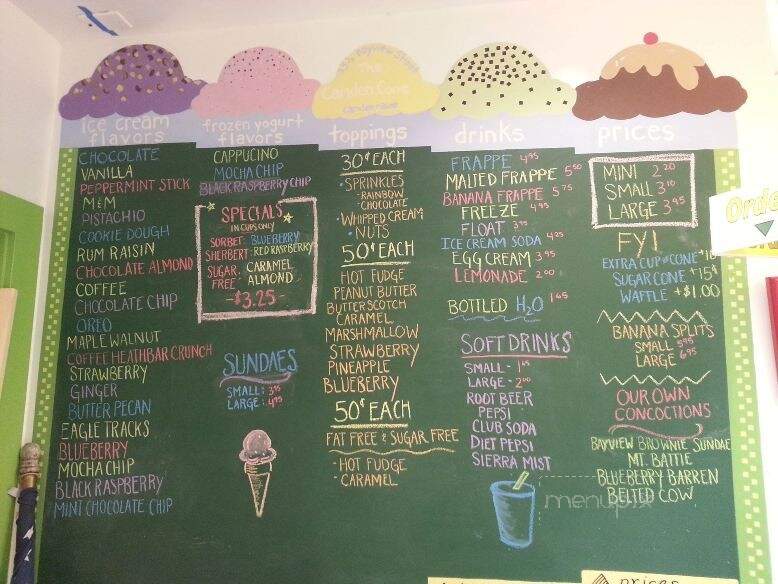 ice cream
flavors
CHOCOLATE
VANILLA
PEPPERMINT STICK
M&M
PISTACHIO
COOKIE DOUGH
RUM RAISIN
CHOCOLATE ALMOND
COFFEE
CHOCOLATE CHIP
OREO
MAPLE WALNUT
COFFEE HEATHBAR CRUNCH
STRAWBERRY
GINGER
BUTTER PECAN
EAGLE TRACKS
BLUEBERRY
MOCHA CHIP
BLACK RASPBERRY
MINT CHOCOLATE CHIP
frozen yogurt
flavors
CAPPUCINO
MOCHA CHIP
BLACK RASPBERRY CHIP
SPECIALS
IN CUPS ONLY
SORBET: BLUEBERRY
SHERBERT: RED RASPBERRY
SUGAR FREE: CARAMEL ALMOND
-$3.25-
SUNDAES
SMALL: 3⁹⁵
LARGE: 4⁹⁵
The
Camden Cone
toppings
30¢ EACH
· SPRINKLES
- RAINBOW
- CHOCOLATE
· WHIPPED CREAM
· NUTS
50¢ EACH
HOT FUDGE
PEANUT BUTTER
BUTTERSCOTCH
CARAMEL
MARSHMALLOW
STRAWBERRY
PINEAPPLE
BLUEBERRY
50¢ EACH
FAT FREE & SUGAR FREE
- HOT FUDGE
- CARAMEL
drinks
FRAPPE 4⁹⁵
MALTED FRAPPE 5⁵⁰
BANANA FRAPPE 5⁷⁵
FREEZE 4⁹⁵
FLOAT 3⁹⁵
ICE CREAM SODA 4²⁵
EGG CREAM 3⁹⁵
LEMONADE 2⁰⁰
BOTTLED H₂O 1⁶⁵
SOFT DRINKS
SMALL -
LARGE - 2⁰⁰
ROOT BEER
PEPSI
CLUB SODA
DIET PEPSI
SIERRA MIST
prices
MINI 2²⁰
SMALL 3¹⁰
LARGE 3⁹⁵
FYI
EXTRA CUP or CONE +10¢
SUGAR CONE +15¢
WAFFLE +$1.00
BANANA SPLITS
SMALL 5⁹⁵
LARGE 6⁹⁵
OUR OWN
CONCOCTIONS
BAYVIEW BROWNIE SUNDAE
MT. BATTIE
BLUEBERRY BARREN
BELTED COW
menupix
Orde
prices